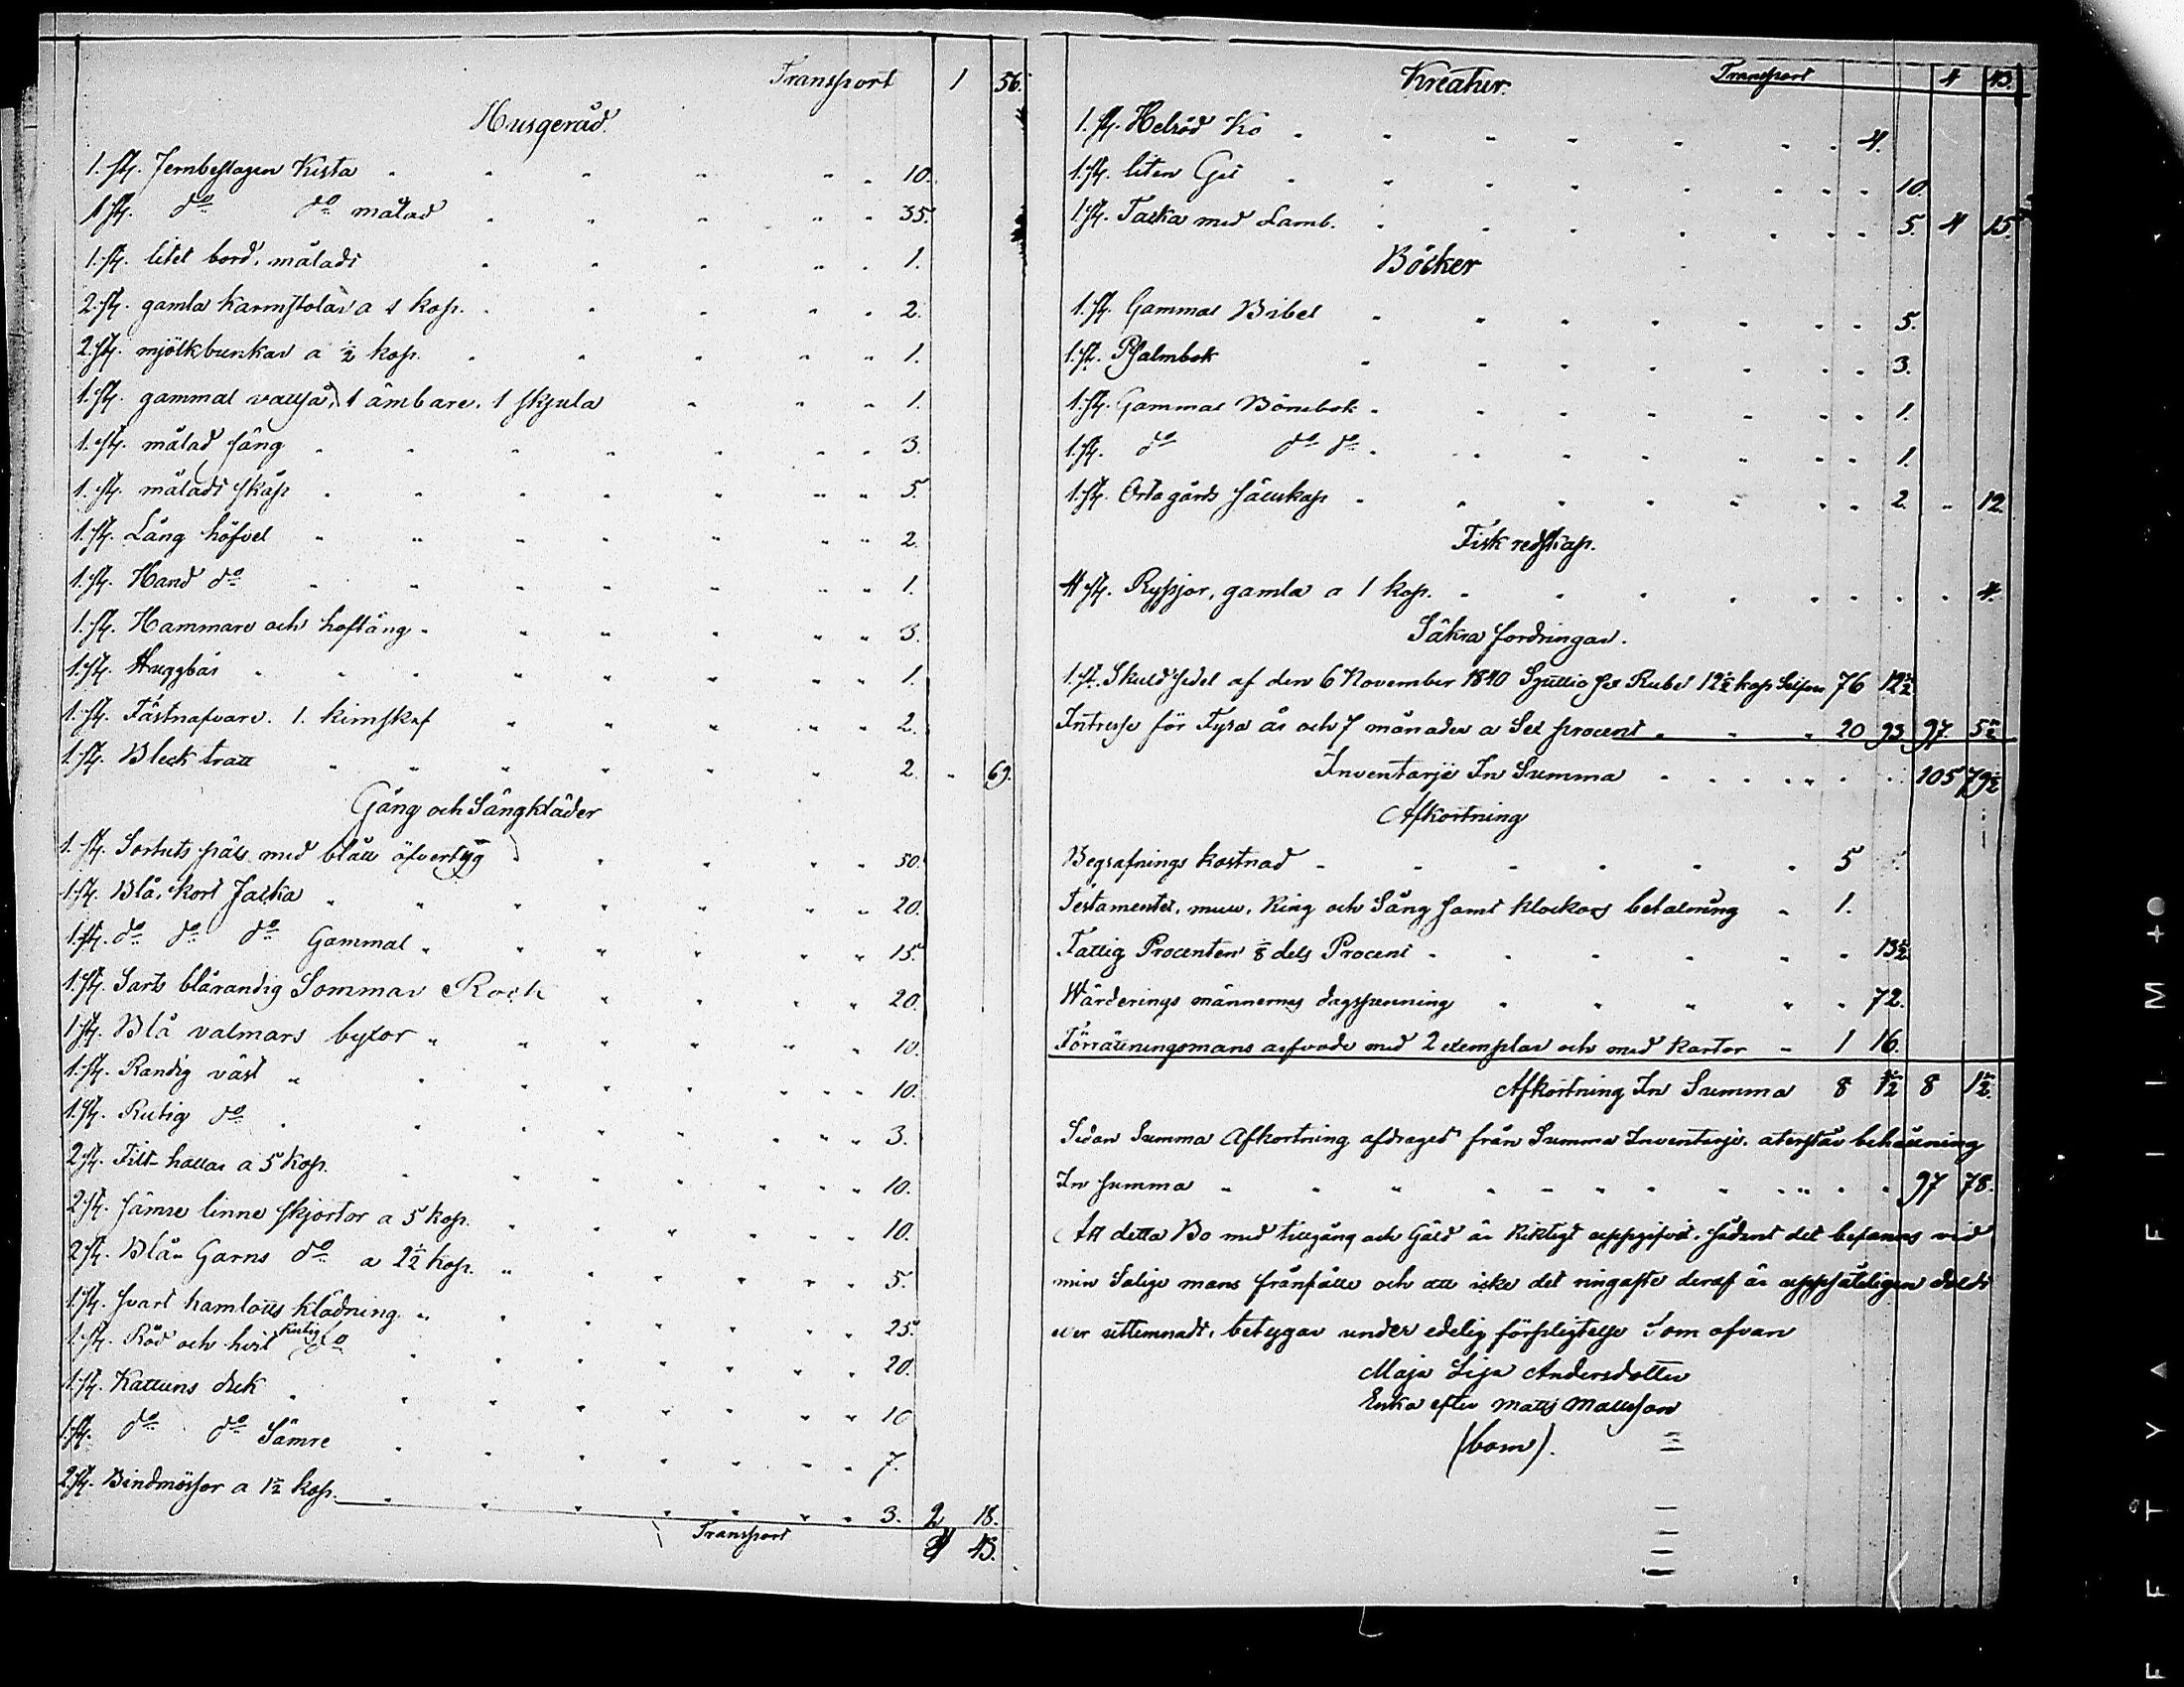 Transport 1 56.
Husgeråd.
1. st. Jernbeslagen Kista 10.
1 st. do do målad 35.
1. st. litet bord, måladt 1.
2. st. gamla karmstolar a 1 kop. 2.
2. st. mjölkbunkar a ½ kop. 1.
1. st. gammal vattså, 1 ämbare. 1 skjula 1.
1. st. målad säng 3.
1. st. måladt skåp 5.
1. st. Lång höfvel 2.
1. st. Hand do 1.
1. st. Hammare och hoftång 3.
1. st. Huggbår 1.
1. st. Fästnafvare. 1. kimskaf 2.
1. st. Bleck tratt 2. " 69.
Gång och Sängkläder
1. st. Sortuts päls med blått öfvertyg 50.
1. st. Blå, kort Jacka 20.
1. st. do do do Gammal 15.
1. st. Sarts blårandig Sommar Rock 20.
1. st. Blå valmars byxor 10.
1. st. Randig väst 10.
1. st. Rutig do 3.
2. st. Filt-hattar a 5 kop. 10.
2. st. sämre linne skjortor a 5 kop. 10.
2. st. Blå-Garns do a 2½ kop. 5.
1. st. svart kamlotts klädning 25.
1. st. Röd och hvit Rutig do 20.
1. st. Kattuns duk 10
1. st. do do Sämre 7.
2. st. Bindmössor a 1½ kop. 3. 2 18.
Transport 4 43.
Kreatur. Transport 4 43.
1. st. Helröd Ko 4.
1. st. liten Get 10.
1. st. Tacka med Lamb. 5. 4 15.
Böcker
1. st. Gammal Bibel 5.
1. st. Psalmbok 3.
1. st. Gammal Bönebok 1.
1. st. do do do 1.
1. st. Örtagårds sällskap 2. " 12.
Fisk redskap.
4 st. Ryssjor, gamla a 1 kop. 4.
Säkra fordringar.
1. st. Skuldsedel af den 6 November 1840 Sjuttio sex Rubel 12½ kop Silfver 76 12½
Intresse för Fyra år och 7 månader a Sex procent 20 93 97. 5½
Inventarje In Summa 105 79½
Afkortning
Begrafnings kostnad 5
Testamentet, mull, Ring och Sång samt klockors betalning 1.
Fattig Procenten ⅛ dels Procent 13½
Wärderings männernes dagspenning 72.
Förrättningsmans arfvode med 2 exemplar och med kartor 1 16.
Afkortning In Summa 8 1½ 8 1½.
Sedan Summa Afkortning afdraget från Summa Inventarje, återstår behållning
In summa 97 78.
Att detta Bo med tillgång och Gäld är Riktigt uppgifvit, sådant det befanns vid
min Salige mans frånfälle och att icke det ringaste deraf är uppsåteligen doldt
eller uttemnadt, betygar under edelig förpligtelse Som ofvan
Maja Lisa Andersdotter
Enka efter Matts Mattsson
(bom).
FFTYAFILM